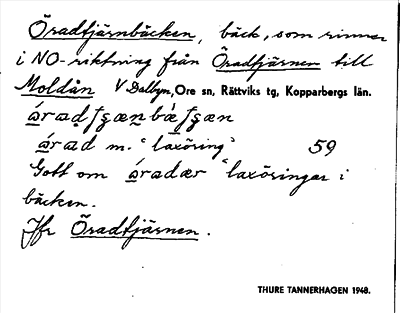 Öradtjärnbäcken, bäck, som rinner
i NO-riktning från Öradtjärnen till
Moldån V Dalbyn, Ore sn, Rättviks tg, Kopparbergs län.
árad m. "laxöring" 59
Gott om áradær "laxöringar i
bäcken.
Jfr Öradtjärnen.
THURE TANNERHAGEN 1948.